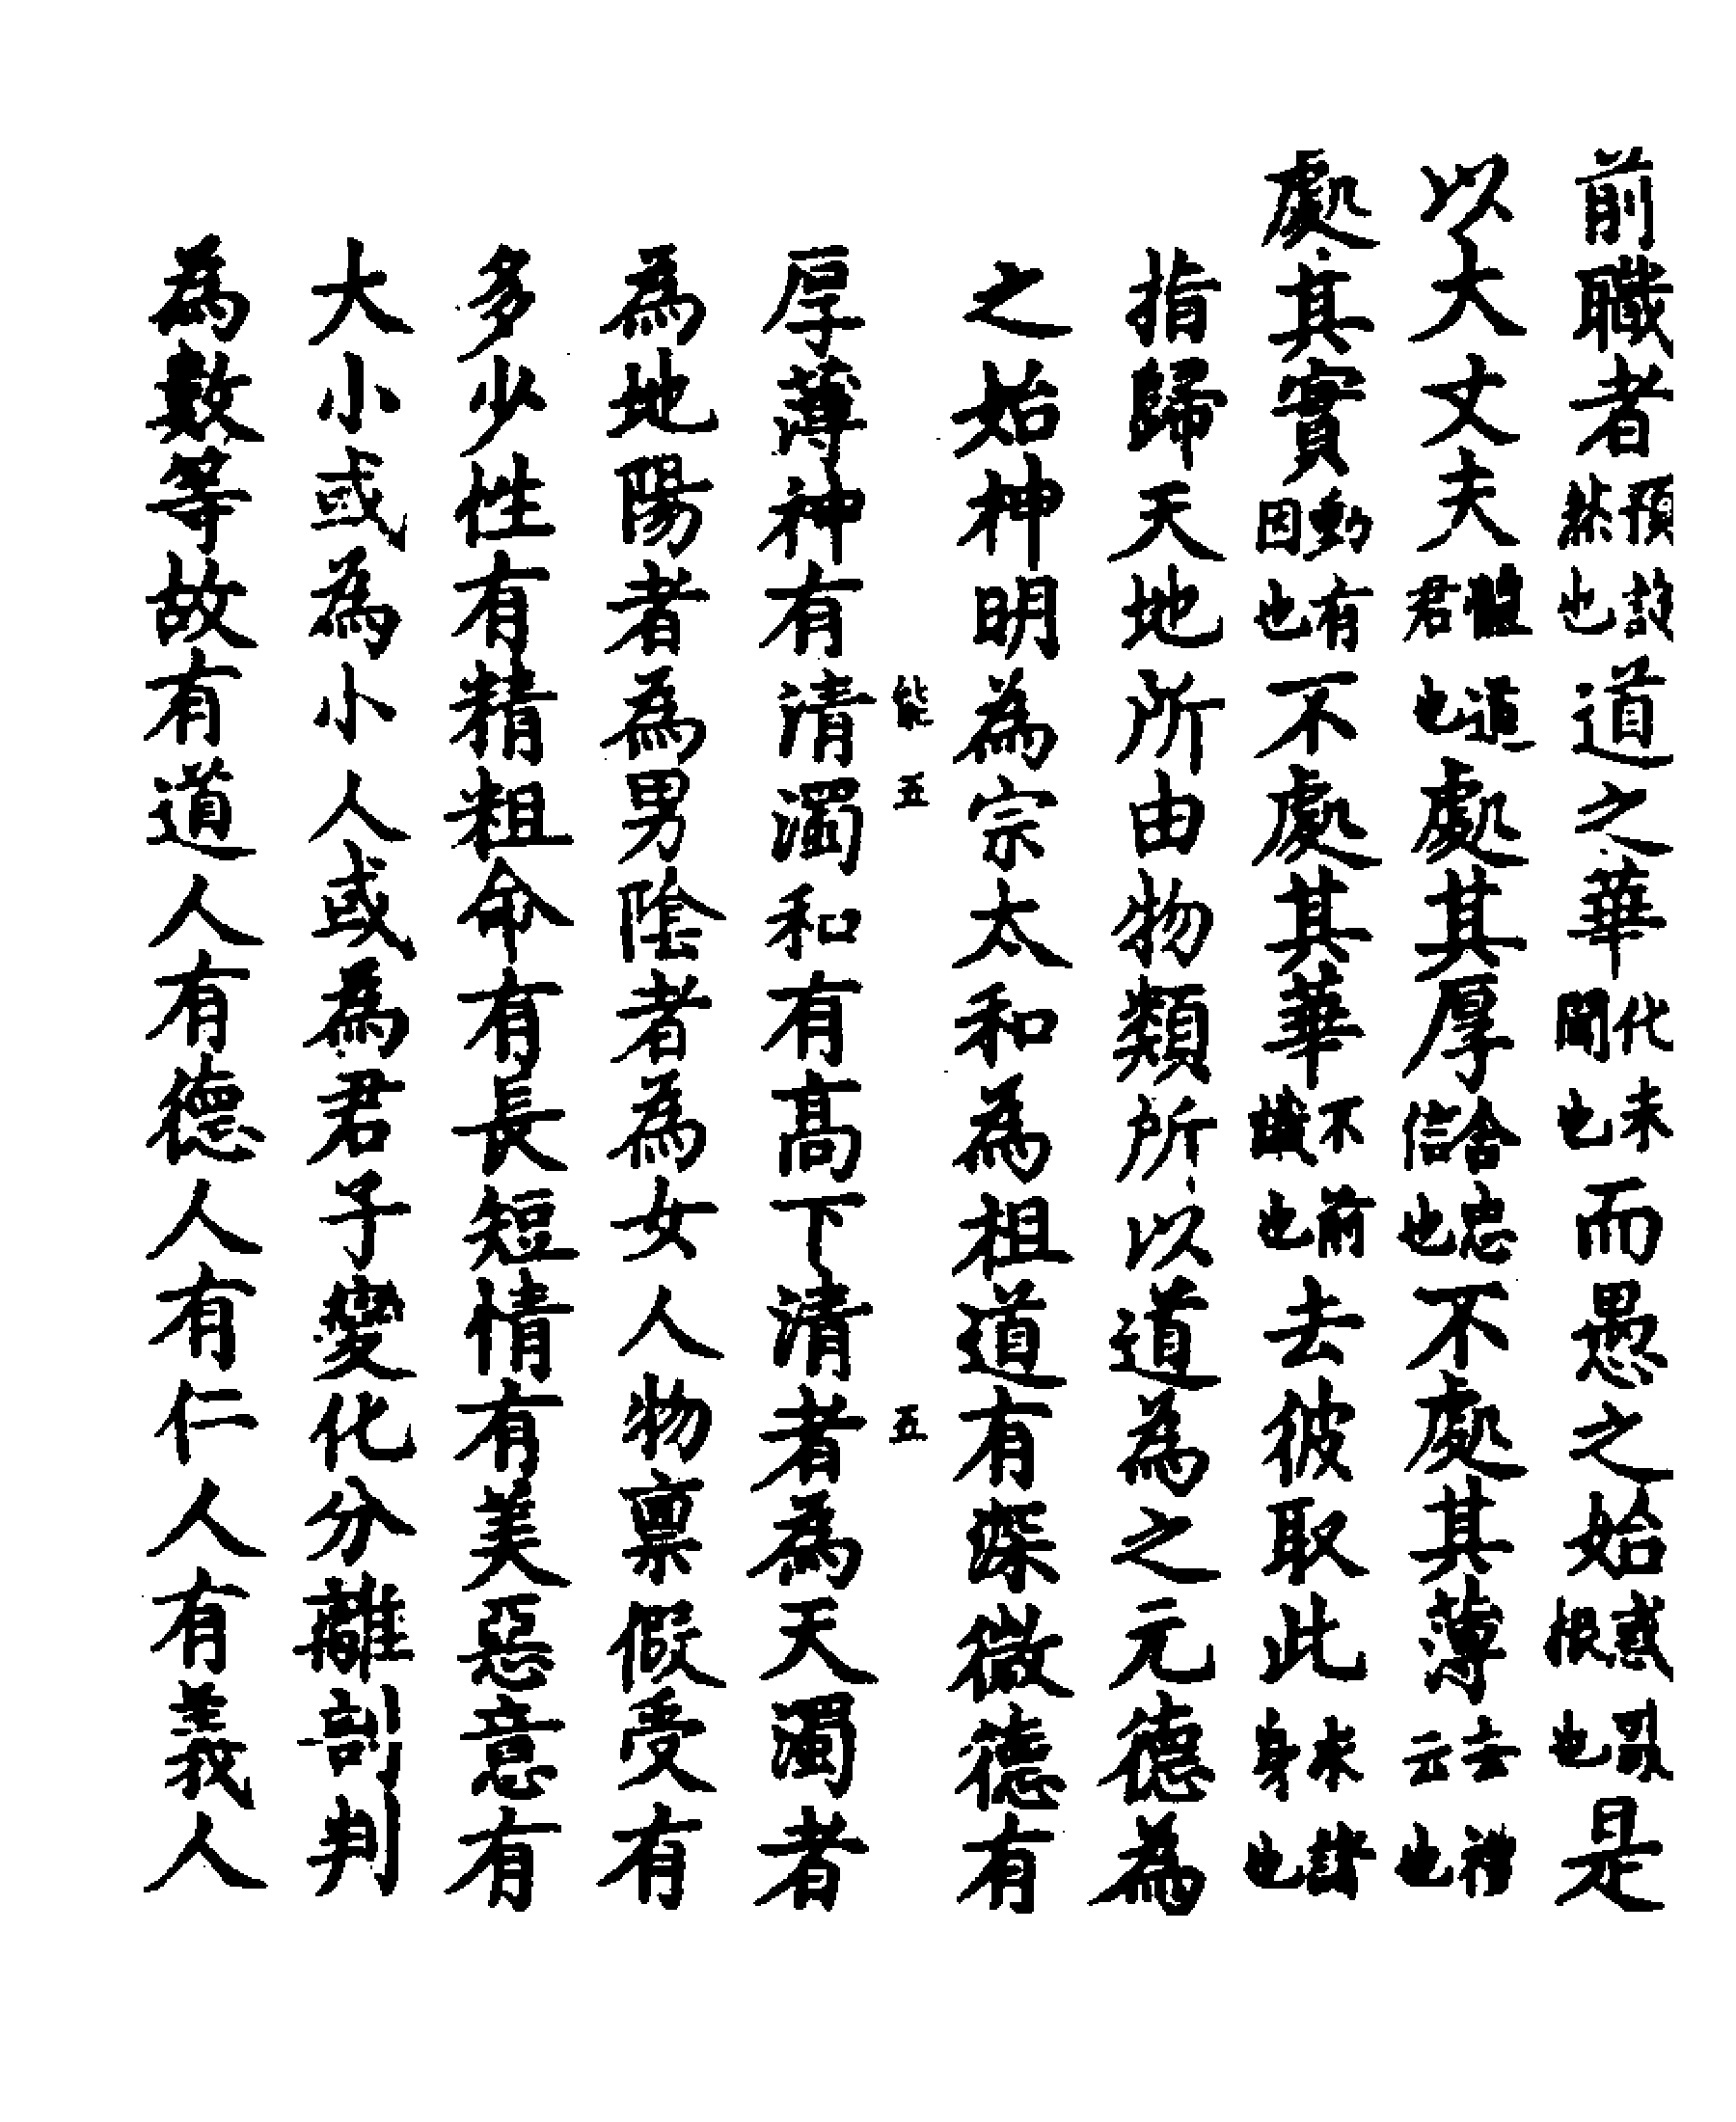 前職者預設然也道之華化未聞也而愚之始惑也是
以大丈夫體道君也處其厚舍忠信也不處其薄去禮云也
處其實動有因也不處其華不前識也去彼取此求諸身也
指歸天地所由物類所以道為之元德為
之始神明為宗太和為祖道有深微德有
能五五
厚薄神有清濁和有高下清者為天濁者
為地陽者為男陰者為女人物禀假受有
多少性有精粗命有長短情有美惡意有
大小或為小人或為君子變化分離剖判
為數等故有道人有德人有仁人有義人